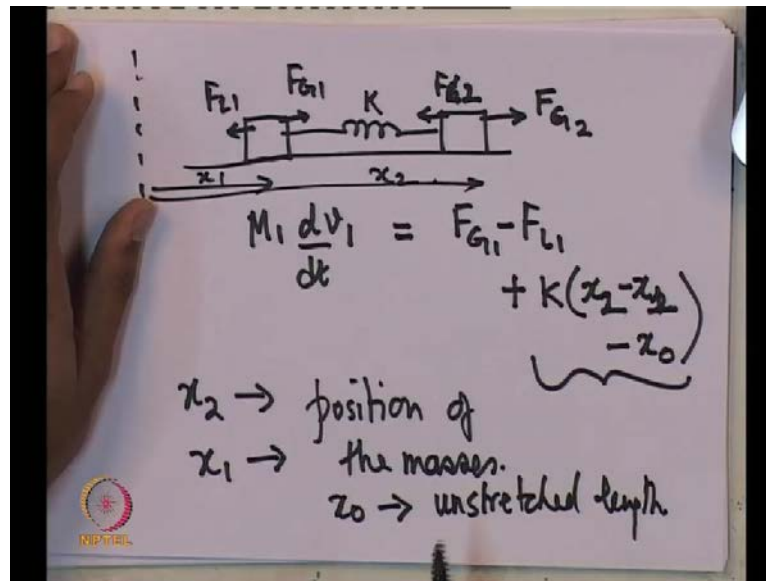 F_L1 F_G1 K F_G2 F_G2
x_1 x_2
M_1 dv_1/dt = F_G1 - F_L1
+ K(x_2 - x_
- x_0)
x_2 → position of
x_1 → the masses.
x_0 → unstretched length
NPTEL